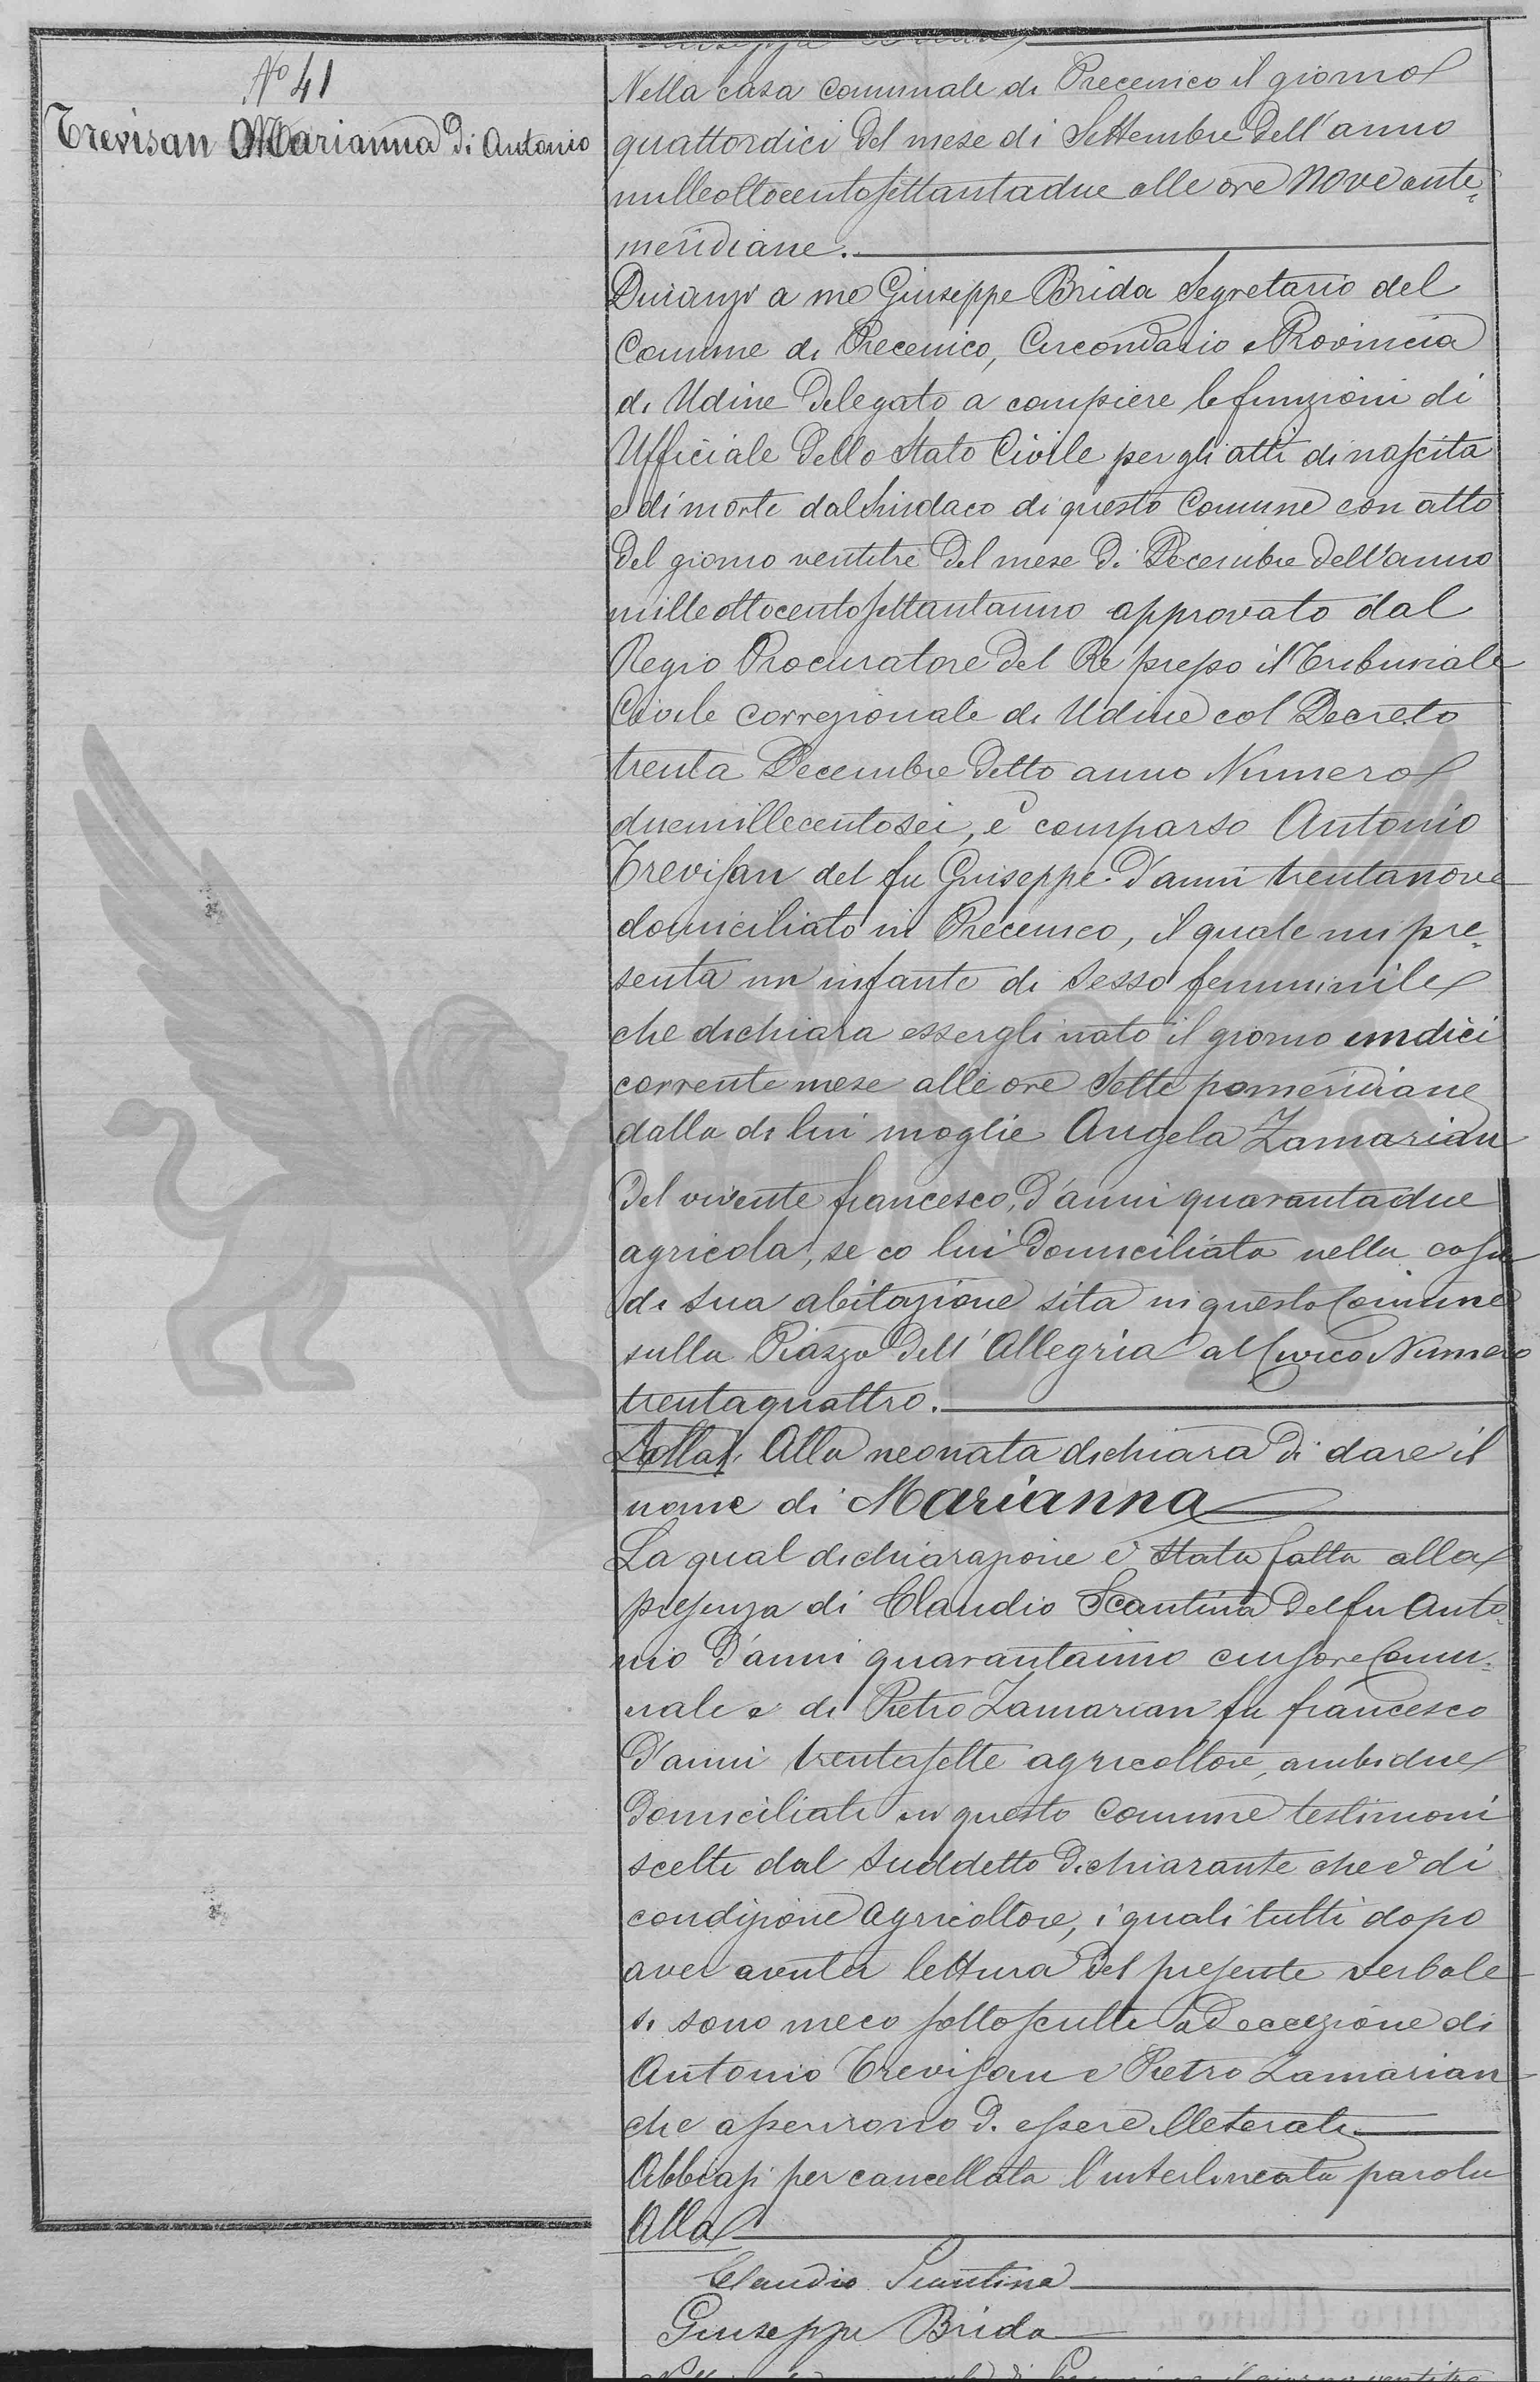 N° 41
Trevisan Marianna di Antonio
Nella casa comunale di Precenico il giorno
quattordici del mese di Settembre dell'anno
milleottocentosettantadue alle ore nove ante=
meridiane.
Dinanzi a me Giuseppe Brida Segretario del
Comune di Precenico, Circondario e Provincia
di Udine delegato a compiere le funzioni di
Ufficiale dello Stato Civile per gli atti di nascita
e di morte dal Sindaco di questo Comune con atto
del giorno ventitre del mese di Decembre dell'anno
milleottocentosettantauno approvato dal
Regio Procuratore del Re presso il Tribunale
Civile correzionale di Udine col Decreto
trenta Decembre detto anno Numero
duemillecentosei, è comparso Antonio
Trevisan del fu Giuseppe d'anni trentanove
domiciliato in Precenico, il quale mi pre=
senta un infante di sesso femminile
che dichiara essergli nato il giorno undici
corrente mese alle ore sette pomeridiane
dalla di lui moglie Angela Zamarian
del vivente Francesco, d'anni quarantadue
agricola, se co lui domiciliata nella casa
di sua abitazione sita in questo Comune
sulla Piazza dell'Allegria al Civico Numero
trentaquattro.
Alla neonata dichiara di dare il
nome di Marianna
La qual dichiarazione è stata fatta alla
presenza di Claudio Scantina del fu Anto=
nio d'anni quarantauno cursore Comu=
nale e di Pietro Zamarian fu Francesco
d'anni trentasette agricoltore, ambidue
domiciliati in questo Comune testimoni
scelti dal suddetto dichiarante che è di
condizione agricoltore, i quali tutti dopo
aver avuta lettura del presente verbale
si sono meco sottoscritti ad eccezione di
Antonio Trevisan e Pietro Zamarian
che asserirono d. essere illeterati.
Abbiasi per cancellata l'interlineata parola
Alla
Claudio Scantina
Giuseppe Brida